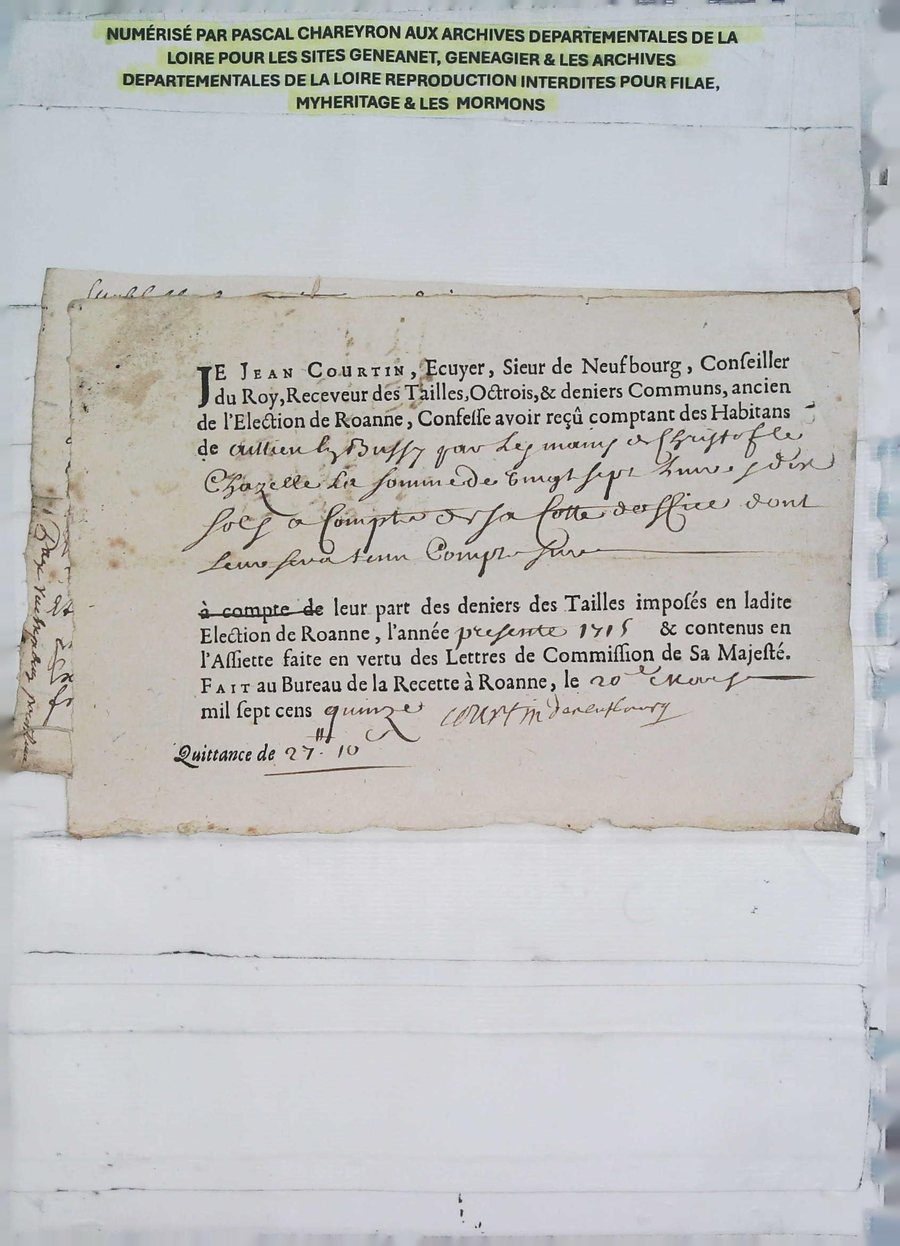 NUMÉRISÉ PAR PASCAL CHAREYRON AUX ARCHIVES DEPARTEMENTALES DE LA
LOIRE POUR LES SITES GENEANET, GENEAGIER & LES ARCHIVES
DEPARTEMENTALES DE LA LOIRE REPRODUCTION INTERDITES POUR FILAE,
MYHERITAGE & LES MORMONS
JE JEAN COURTIN, Ecuyer, Sieur de Neufbourg, Conſeiller
du Roy, Receveur des Tailles, Octrois, & deniers Communs, ancien
de l'Election de Roanne, Confeſſe avoir reçû comptant des Habitans
de Bussy par les mains de Christofle
Chazelle La somme de vingt sept livres dix
sols a Compte de sa Cotte doffice dont
leur sera tenu Compte
à compte de leur part des deniers des Tailles impoſés en ladite
Election de Roanne, l'année presente 1715 & contenus en
l'Aſſiette faite en vertu des Lettres de Commiſſion de Sa Majeſté.
FAIT au Bureau de la Recette à Roanne, le 20e Mars
mil ſept cens quinze Courtin deneufbourg
Quittance de 27ᵗᵗ 10